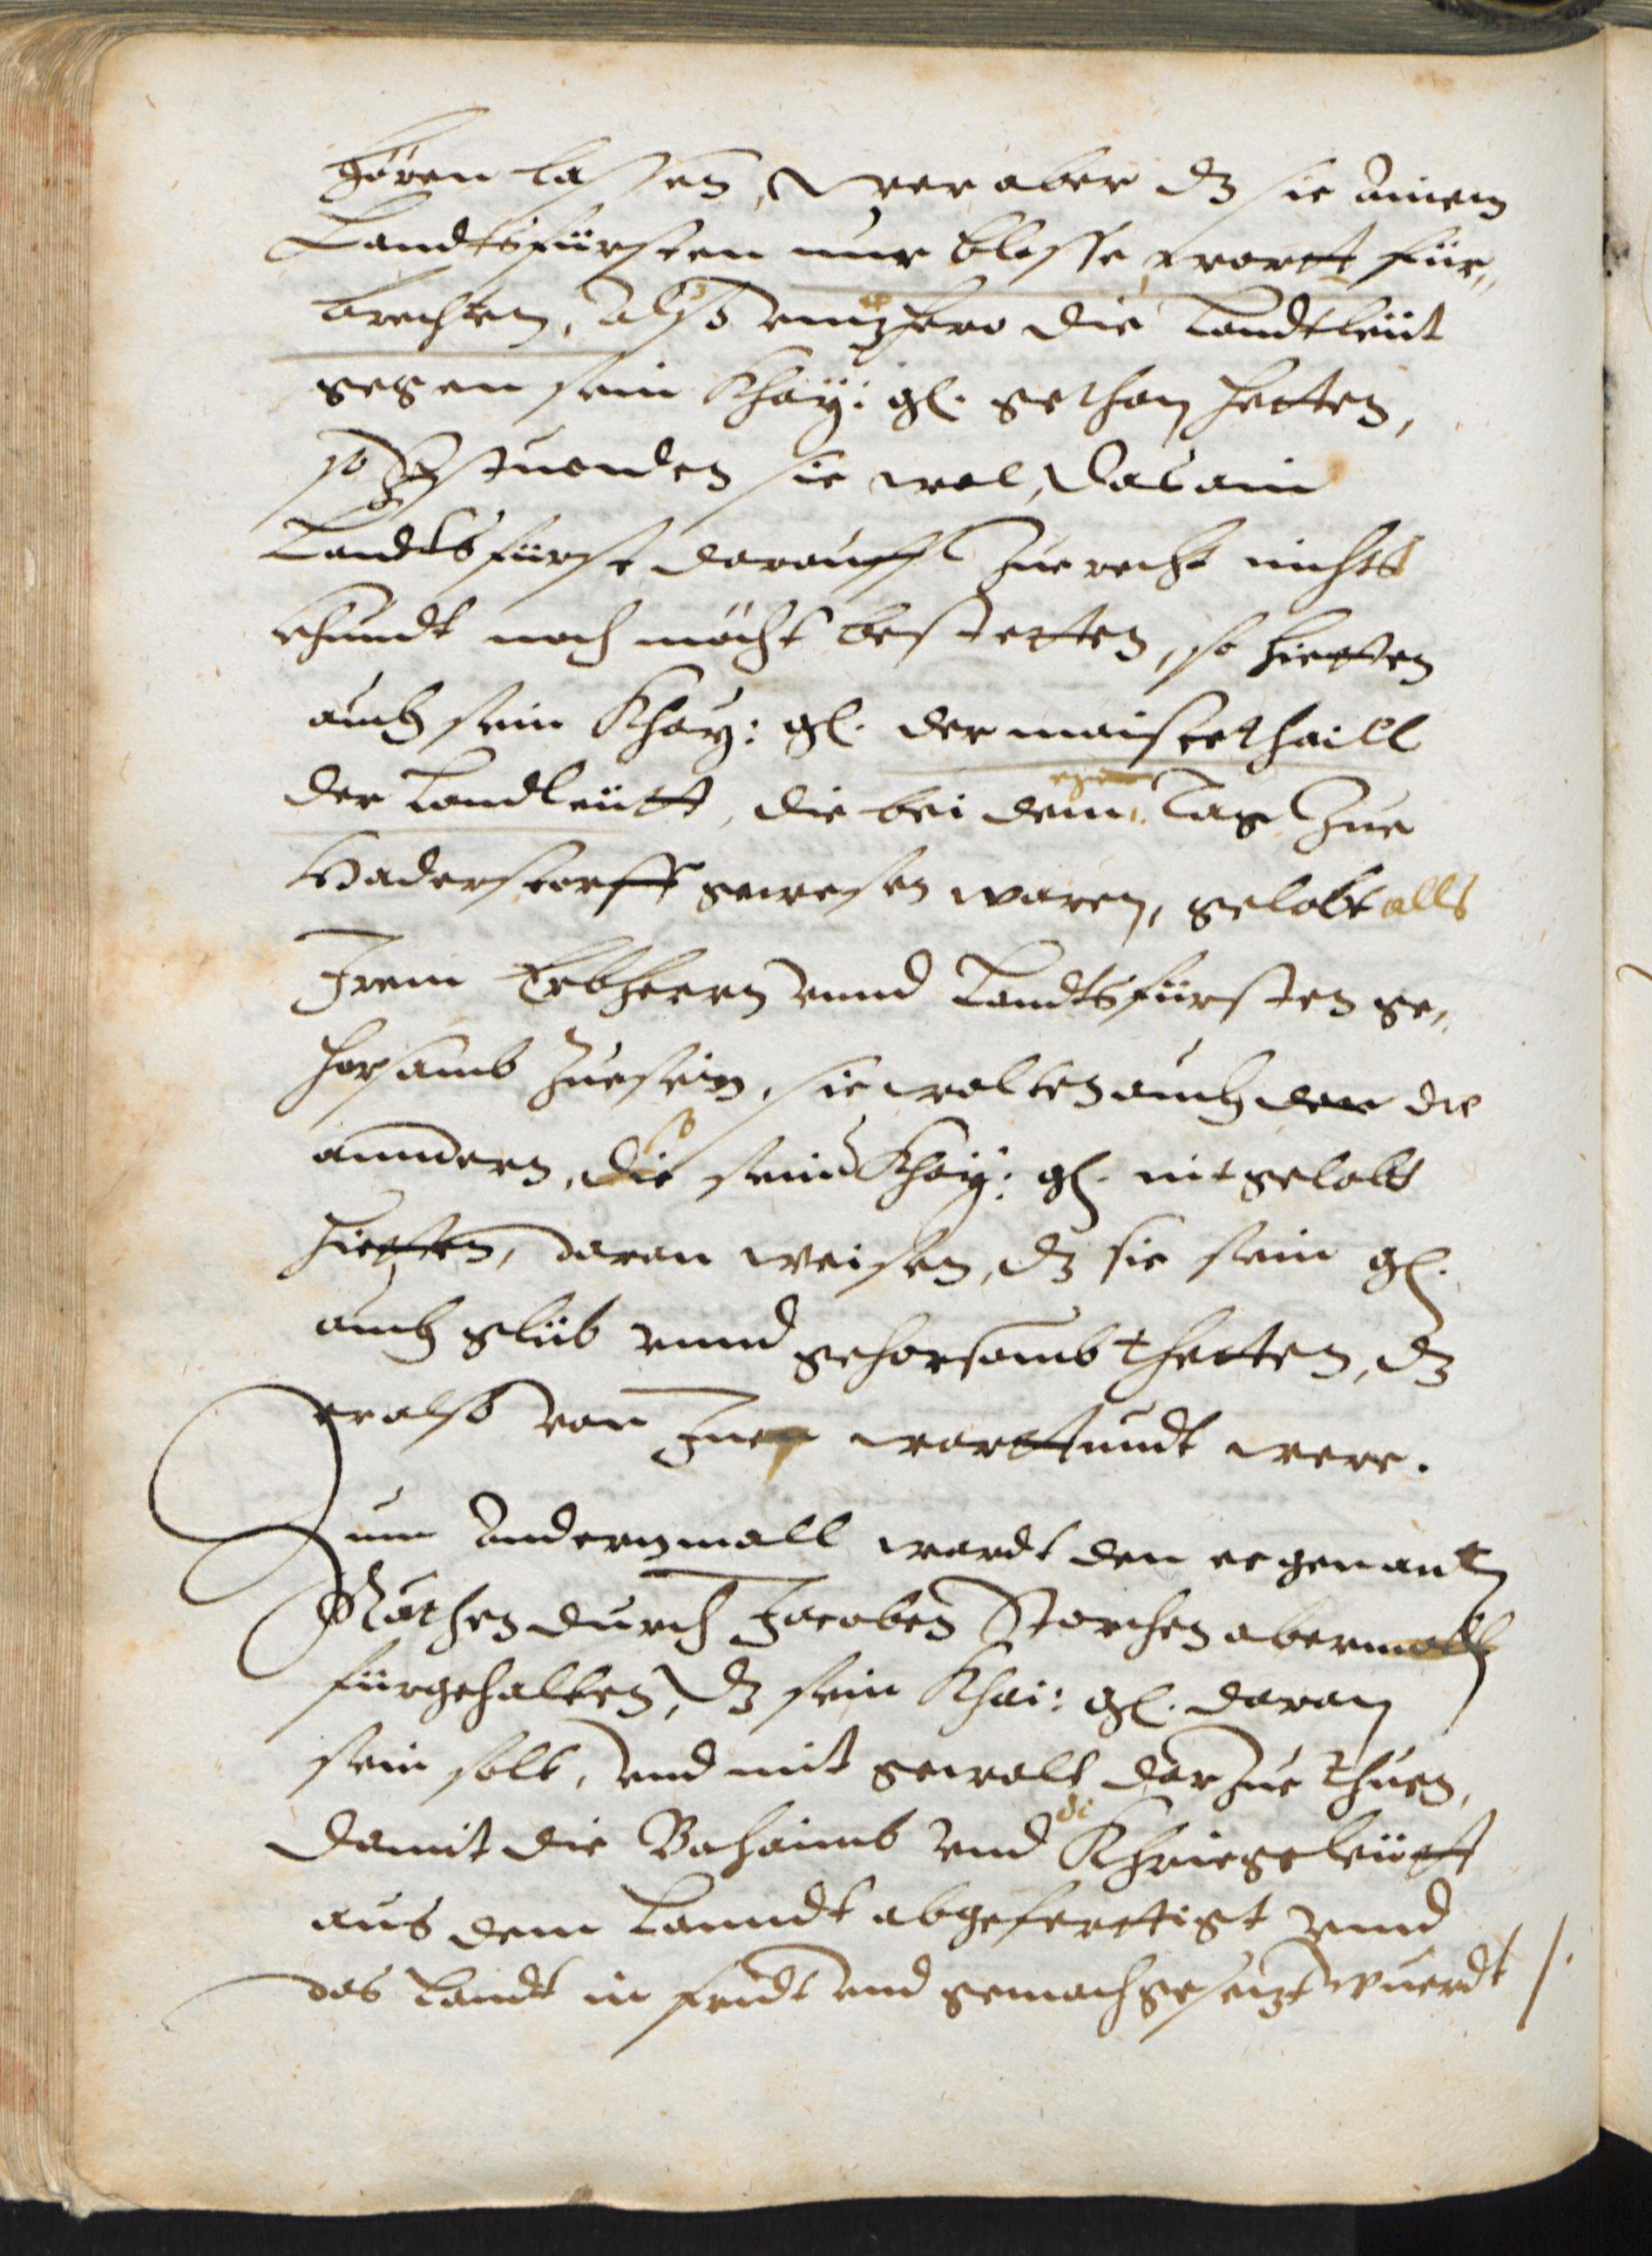 hören lassen, wer aber dz sie Ainem
Landtsfürsten nur blosse wortt für„
brechten, also vnzhero die Landtleüt
gegen sein Khaÿ: gl. gethan hetten,
so stuenden sie wol, das ain
Landtsfürst darauff zue recht nichts
khundt noch möcht bestetten, so hietten
auch sein Khaÿ: gl. der maistethaill
der Landleütt, die bei dem Tag zue
Haderstorff gewesen waren, gelobt alls
Irem Erbherrn vnnd Landtsfürsten ge„
horsamb zuesein, sie wolten auch den die
anndern, die sein Khaÿ: gl. nit gelobt
hietten, daran weisen, dz sie sein gl.
auch glüb vnnd gehorsamb thetten, dz
er also von Inen wortt undt were.
Zum Andernmall wardt den egenantn
Räthen durch Jacoben Storchen abermalls
fürgehalten, dz sein Khai: gl. daran
sein solt, vnd mit gewalt darzue thuen,
di
damit die Behaimb vnd Khriegsleütt
aus dem Lanndt abgeferttigt vnnd
das Landt in fridt vnd gemach gesezt wuerdt /.